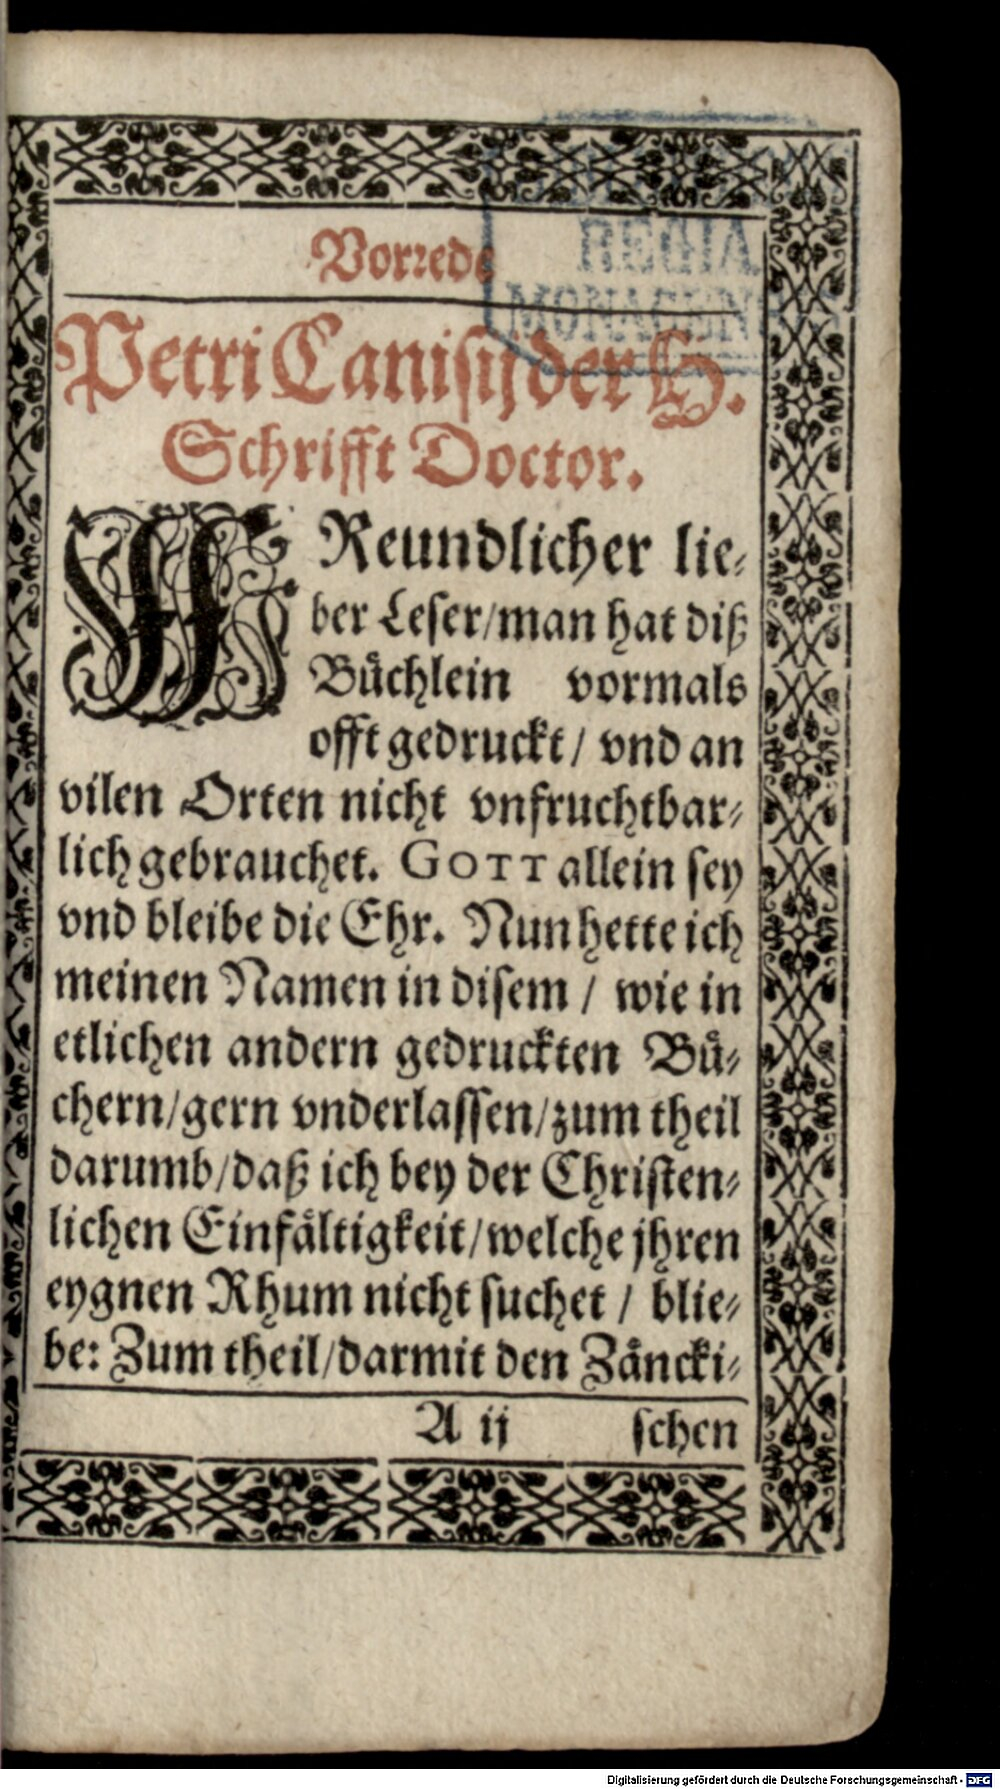 Vorrede
REGIA
MONACENSIS
Petri Canisij der H.
Schrifft Doctor.
FReundlicher lie-
ber Leser/man hat diß
Büchlein vormals
offt gedruckt/ vnd an
vilen Orten nicht vnfruchtbar-
lich gebrauchet. GOTT allein sey
vnd bleibe die Ehr. Nun hette ich
meinen Namen in disem / wie in
etlichen andern gedruckten Bü-
chern/gern vnderlassen/zum theil
darumb/daß ich bey der Christen-
lichen Einfältigkeit/welche jhren
eygnen Rhum nicht suchet / blie-
be: Zum theil/darmit den Zäncki-
A ij schen
Digitalisierung gefördert durch die Deutsche Forschungsgemeinschaft - DFG